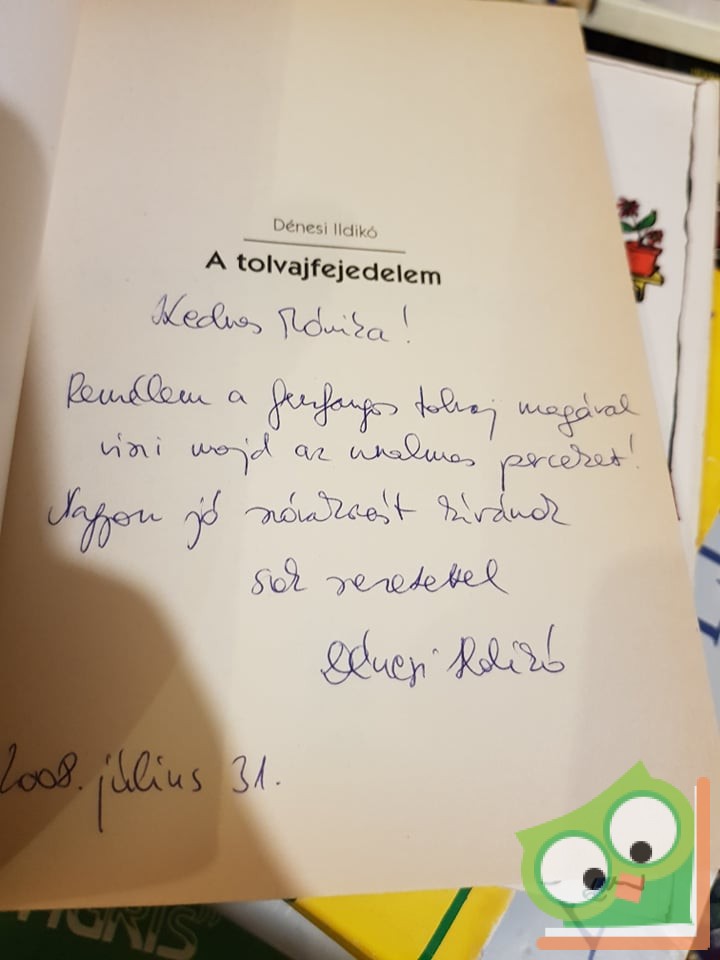 Dénesi Ildikó
A tolvajfejedelem
Kedves Mónika!
Remélem a furfangos tolvaj magával
viszi majd az unalmas perceket!
Nagyon jó szórakozást kívánok
sok szeretettel
Dénesi Ildikó
2008. július 31.
TIGRIS"